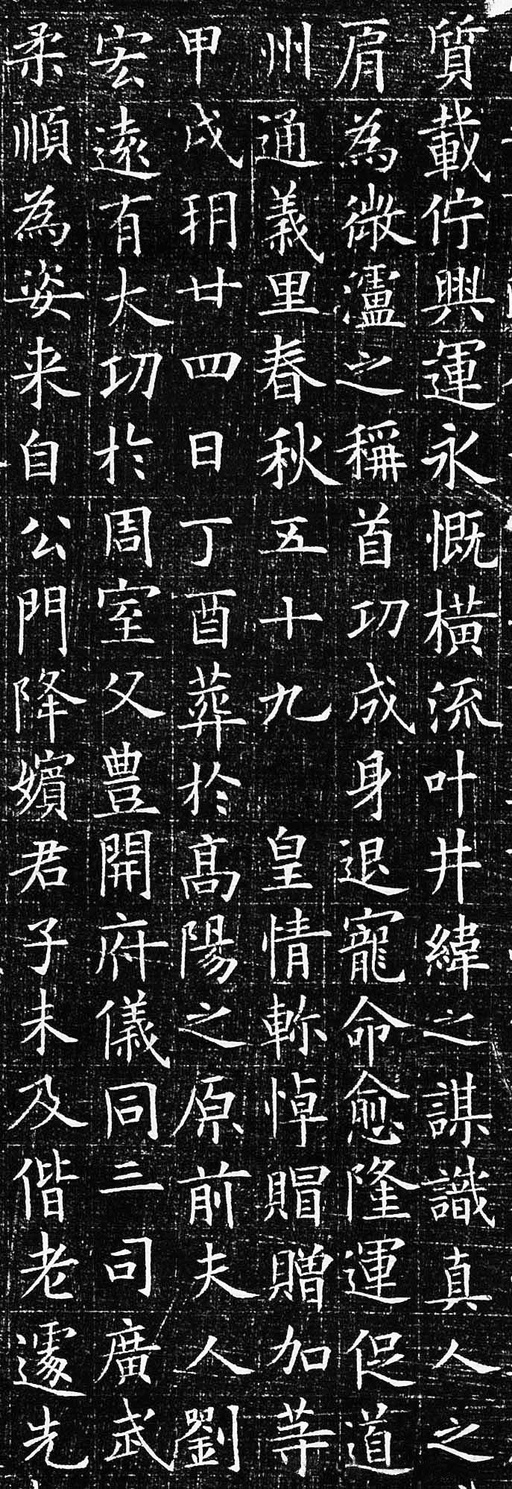 質載佇興運永慨橫流叶井緯之謀識真人之
屑為微瀘之稱首功成身退寵命愈隆運促道
州通義里春秋五十九 皇情軫悼賵贈加等
甲戌玥廿四日丁酉葬於高陽之原前夫人劉
宏遠有大功於周室父豊開府儀同三司廣武
柔順為姿来自公門降嬪君子未及偕老遽先